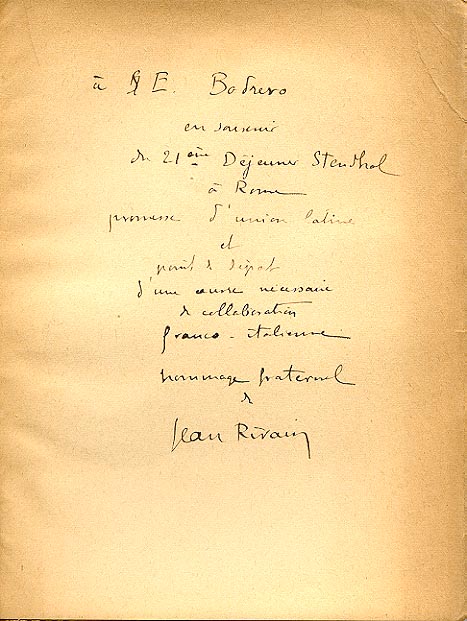 à S E. Bodrero
en souvenir
du 21ème Déjeuner Stendhal
à Rome
promesse d'union latine
et
point de départ
d'une œuvre nécessaire
de collaboration
franco-italienne
hommage fraternel
de
Jean Rivain